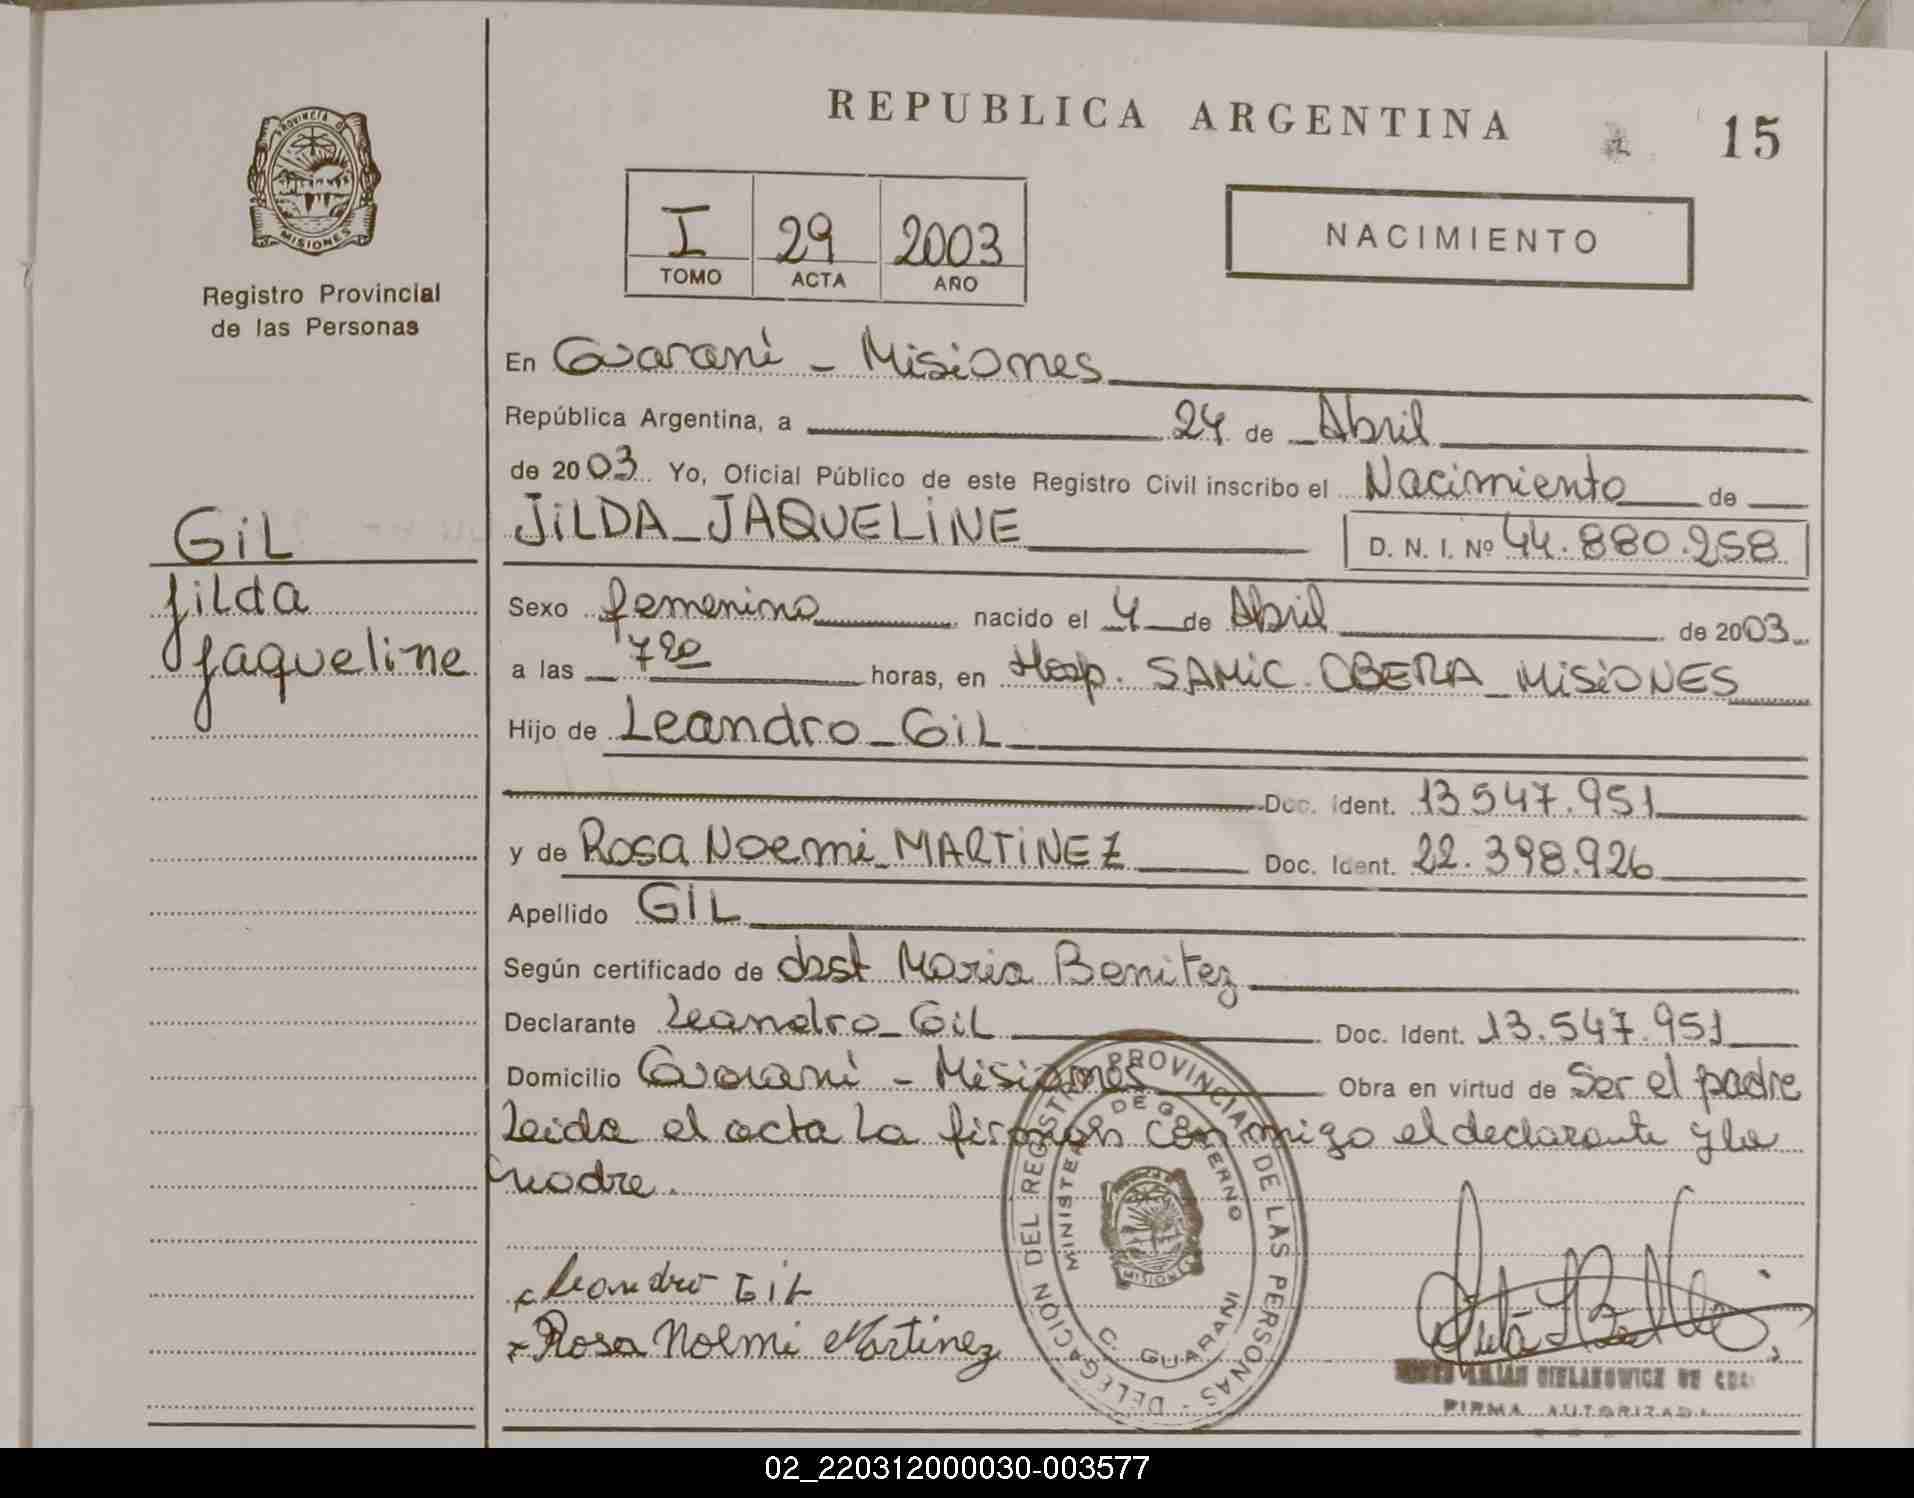 PROVINCIA DE
MISIONES
Registro Provincial
de las Personas
GiL
Jilda
Jaqueline
REPUBLICA ARGENTINA
15
I 29 2003
TOMO ACTA AÑO
NACIMIENTO
En Guarani - Misiones
República Argentina, a 24 de Abril
de 2003 Yo, Oficial Público de este Registro Civil inscribo el Nacimiento de
JiLDA JAQUELiNE D. N. I. Nº 44.880.258
Sexo femenino nacido el 4 de Abril de 2003
a las 7 20 horas, en Hosp. SAMiC OBERA MiSiONES
Hijo de Leandro GiL
Doc. Ident. 13.547.951
y de Rosa Noemi MARTiNEZ Doc. Ident. 22.398.926
Apellido GIL
Según certificado de obst Maria Benitez
Declarante Leandro GiL Doc. Ident. 13.547.951
Domicilio Guarani - Misiones Obra en virtud de Ser el padre
Leida el acta La firman conmigo el declarante y la
madre.
x Leandro GiL
x Rosa Noemi Martinez
DELEGACION DEL REGISTRO PROVINCIAL DE LAS PERSONAS -
MINISTERIO DE GOBIERNO
MISIONES
C. GUARANI
LILIAN BIELAKOWICZ DE
FIRMA AUTORIZADA
02_220312000030-003577